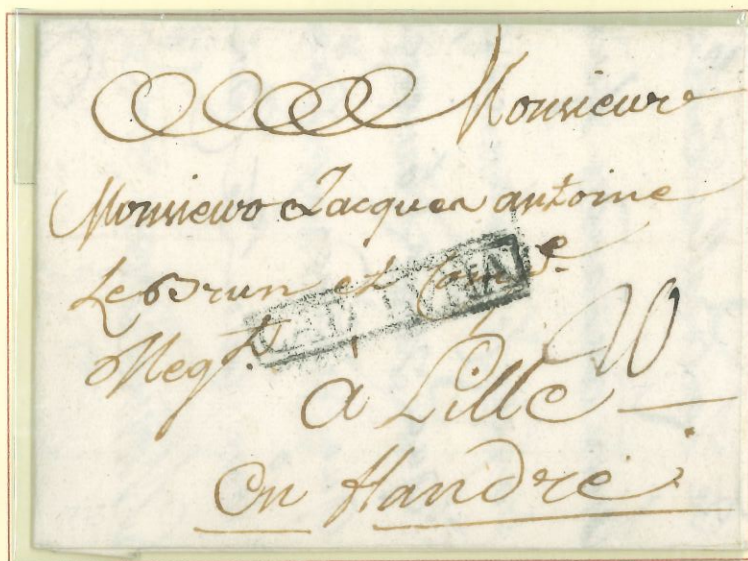 Monsieur
Monsieur Jacques antoine
LeBrun et Comp.e
Neg.ts
20
à Lille
en flandre